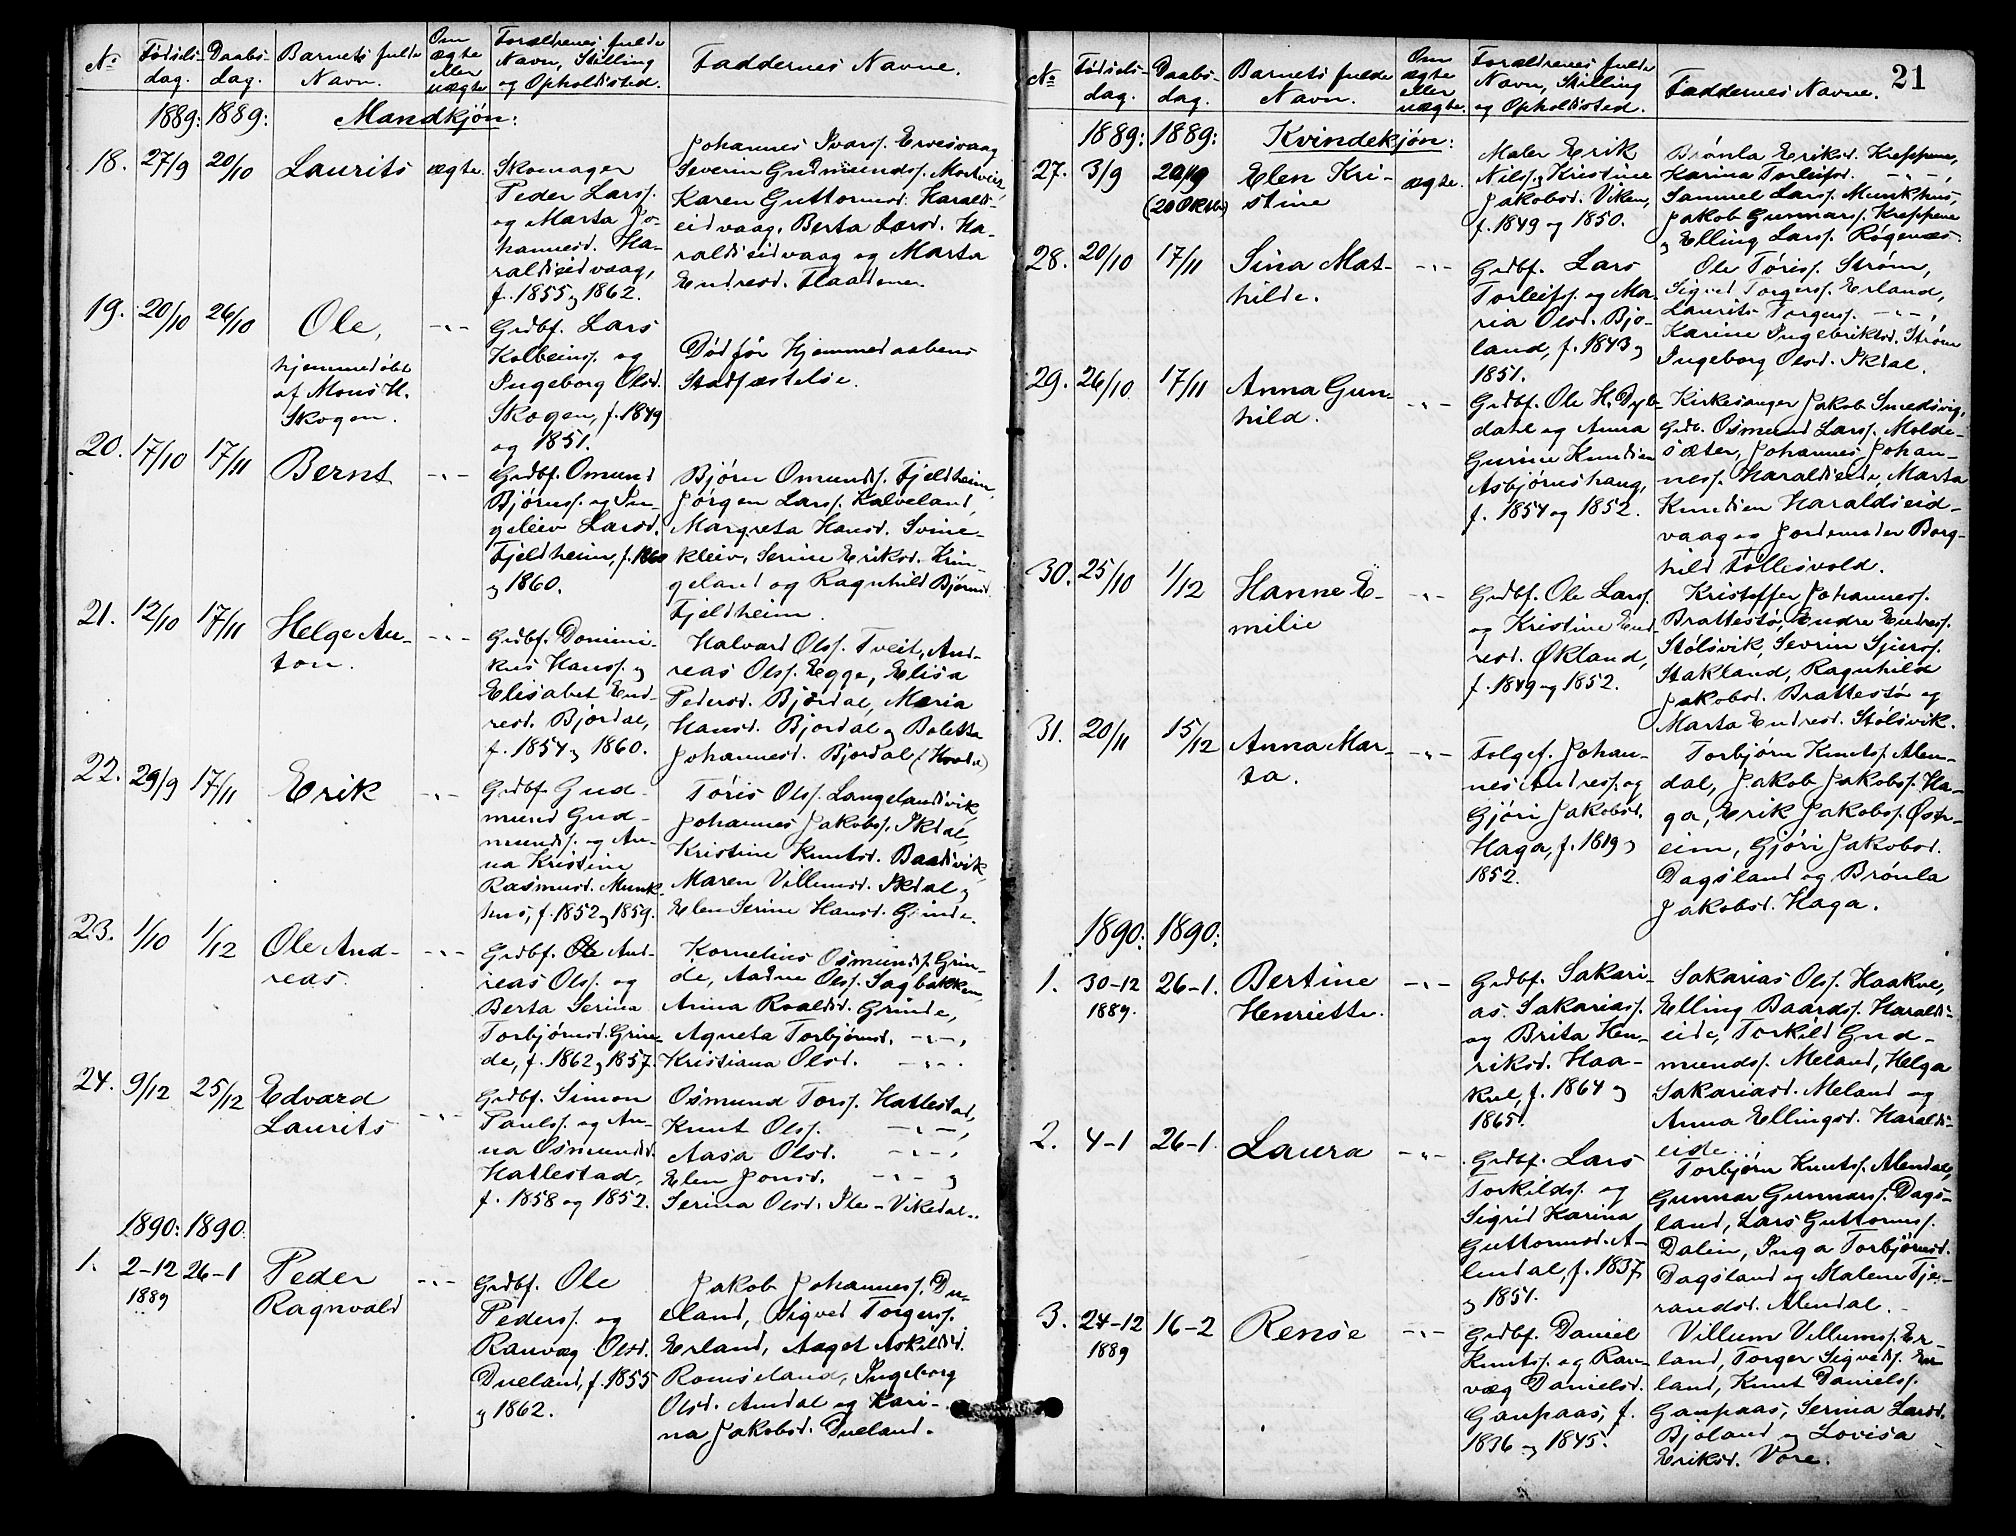 No Fødsels- dag. Daabs- dag. Barnets fulde Navn. Om ægte eller uægte Forældrenes fulde Navn, Stilling og Opholdssted. Faddernes Navne.
1889: 1889: Mandkjøn:
18. 27/9 20/10 Laurits ægte.
Skomager
Peder Larss.
og Marta Jo-
hannesd. Ha-
raldseidvaag,
f. 1855 og 1862.
Johannes Ivarss. Ervesvaag
Severin Gudmunds. Mortveit,
Karen Guttormsd. Haralds-
eidvaag, Berta Larsd. Ha-
raldseidvaag og Marta
Endresd. Flaadene.
19. 20/10 26/10 Ole, -"-
hjemmedøbt
af Mons H.
Skogen.
Grdbf. Lars
Kolbeinss. og
Ingeborg Olsd.
Skogen, f. 1849
og 1851.
Død før Hjemmedaabens
Stadfæstelse.
20. 17/10 17/11 Bernt -"-
Grdbf. Omund
Bjørnss. og In-
geleiv Larsd.
Fjeldheim, f. 1860
og 1860.
Bjørn Omunds. Fjeldheim,
Jørgen Larss. Kalveland,
Margreta Hansd. Svine-
kleiv, Serine Eriksd. Krin-
geland og Ragnhild Bjørnsd.
Fjeldheim.
21. 12/10 17/11 Helge An-
ton. -"-
Grdbf. Domini-
kus Hanss. og
Elisabet End-
resd. Bjordal,
f. 1854 og 1860.
Halvard Olss. Tveit, And-
reas Olss. Egge, Elisa
Pedersd. Bjordal, Maria
Hansd. Bjordal og Boletta
Johannesd. Bjordal
22. 29/9 17/11 Erik -"-
Grdbf. Gud-
mund Gud-
munds. og An-
na Kristine
Rasmusd. Munk-
hus, f. 1852 og 1859.
Tøris Olss. Langelandsvik,
Johannes Jakobs. Ikdal,
Kristine Knutsd. Baadsvik,
Maren Villumsd. Ikdal og
Elen Serine Hansd. Grinde.
23. 1/10 1/12 Ole And-
reas. -"-
Grdbf. And-
reas Olss. og
Berta Serina
Torbjørnsd. Grin-
de, f. 1862 og 1857.
Kornelius Osmunds. Grin-
de, Aadne Olss. Sagbakken,
Anna Roaldsd. Grinde,
Agneta Torbjørnsd. -"-,
Kristiana Olsd. -"-.
24. 9/12 25/12 Edvard
Laurits -"-
Grdbf. Simon
Paulss. og An-
na Osmundsd.
Hatlestad,
f. 1858 og 1852.
Osmund Torss. Hatlestad,
Knut Olss. -"-,
Aasa Olsd. -"-,
Elen Jonsd. -"- og
Serina Olsd. Ile - Vikedal.
1890: 1890.
1. 2-12 1889 26-1 Peder
Ragnvald -"-
Grdbf. Ole
Pederss. og
Ranvæg Olsd.
Dueland, f. 1855
og 1862.
Jakob Johanness. Du-
eland, Sigved Torgerss.
Erland, Aaget Askildsd.
Romseland, Ingeborg
Olsd. Amdal og Kari-
na Jakobsd. Dueland.
21
No Fødsels- dag. Daabs- dag. Barnets fulde Navn. Om ægte eller uægte. Forældrenes fulde Navn, Stilling og Opholdssted. Faddernes Navne.
1889: 1889: Kvindekjøn:
27. 3/9 (20 Oktbr) Elen Kri-
stine ægte.
Maler Erik
Nilss. og Kristine
Jakobsd. Viken,
f. 1849 og 1850.
Brønla Eriksd. Kreppene,
Karina Torleifsd. -"-,
Samuel Larss. Munkhus,
Jakob Gunnarss. Kreppene
og Elling Larss. Røgenæs.
28. 20/10 17/11 Sina Mat-
hilde. -"-
Grdbf. Lars
Torleifss. og Ma-
ria Olsd. Bjo-
land, f. 1843 og
1851.
Ole Tøriss. Strøm,
Sigved Torgerss. Erland,
Laurits Torgerss. -"-,
Karine Ingebriktsd. Strøm
Ingeborg Olsd. Ikdal.
29. 26/10 17/11 Anna Gun-
hild. -"-
Grdbf. Ole H. Dyb-
dahl og Anna
Gurine Knudsen
Asbjørnshaug,
f. 1854 og 1852.
Kirkesanger Jakob Smedsvig,
Grdb. Osmund Larss. Molde-
sæter, Johannes Johan-
ness. Haraldseide, Marta
Knudsen Haraldseid-
vaag og Jordemoder Borg-
hild Tollesvold.
30. 25/10 1/12 Hanne E-
milie -"-
Grdbf. Ole Larss.
og Kristine End-
resd. Økland,
f. 1849 og 1852.
Kristoffer Johanness.
Brattestø, Endre Endress.
Stølsvik, Severin Sjurss.
Stakland, Ragnhild
Jakobsd. Brattestø og
Marta Endresd. Stølsvik.
31. 20/11 15/12 Anna Mar-
ta. -"-
Folgef. Johan-
nes Andress. og
Gjøri Jakobsd.
Haga, f. 1819 og
1852.
Torbjørn Knuts. Alen-
dal, Jakob Jakobs. Ha-
ga, Erik Jakobs. Øst-
eim, Gjøri Jakobsd.
Dagsland og Brønla
Jakobsd. Haga.
1890: 1890:
1. 30-12 1889. 26-1. Bertine
Henriette. -"-
Grdbf. Sakari-
as Sakariass.
og Brita Hen-
riksd. Haa-
kul, f. 1864 og
1865.
Sakarias Olss. Haakul,
Elling Baards. Haralds-
eide, Torkild Gud-
munds. Meland, Helga
Sakariasd. Meland og
Anna Ellingsd. Haralds-
eide.
2. 4-1 26-1. Laura -"-
Grdbf. Lars
Torkilds. og
Sigrid Karina
Guttormsd. A-
lendal, f. 1837
og 1851.
Torbjørn Knuts. Alendal,
Gunnar Gunnarss. Dags-
land, Lars Guttorms.
Dalen, Inga Torbjørnsd.
Dagsland og Malene Tje-
randsd. Alendal.
3. 24-12 1889 16-2 Rense -"-
Grdbf. Daniel
Knuts. og Ran-
væg Danielsd.
Gaupaas, f.
1836 og 1845.
Villum Villums. Er-
land, Torger Sigveds. Er-
land, Knut Daniels.
Gaupaas, Serina Larsd.
Bjoland og Lovisa
Eriksd. Vore.